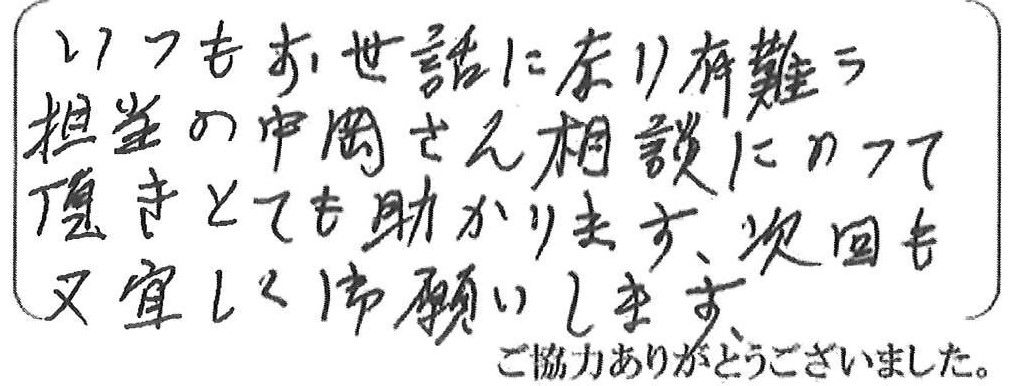 いつもお世話になり有難う
担当の中岡さん相談にのって
頂きとても助かります、次回も
又宜しく御願いします、
ご協力ありがとうございました。